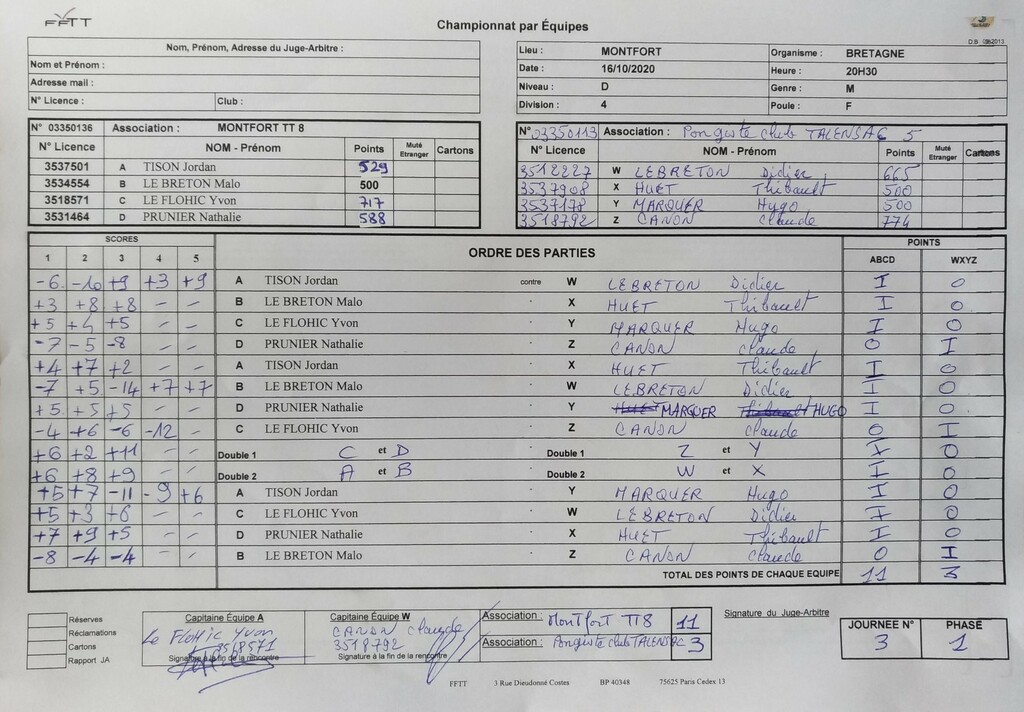 FFTT
Championnat par Équipes
Nom, Prénom, Adresse du Juge-Arbitre :
Nom et Prénom :
Adresse mail :
N° Licence : Club :
Lieu : MONTFORT Organisme : BRETAGNE
Date : 16/10/2020 Heure : 20H30
Niveau : D Genre : M
Division : 4 Poule : F
N° 03350136 Association : MONTFORT TT 8
N° Licence NOM - Prénom Points Muté Etranger Cartons
3537501 A TISON Jordan 529
3534554 B LE BRETON Malo 500
3518571 C LE FLOHIC Yvon 717
3531464 D PRUNIER Nathalie 588
N° 03350113 Association : Pongiste club TALENSAC 5
N° Licence NOM - Prénom Points Muté Etranger Cartons
3512227 W LEBRETON Didier 665
3537908 X HUET Thibault 500
3537178 Y MARQUER Hugo 500
3518792 Z CANON Claude 774
SCORES ORDRE DES PARTIES POINTS
1 2 3 4 5 ABCD WXYZ
-6 -10 +9 +3 +9 A TISON Jordan contre W LEBRETON Didier I 0
+3 +8 +8 - - B LE BRETON Malo - X HUET Thibault I 0
+5 +4 +5 - - C LE FLOHIC Yvon - Y MARQUER Hugo I 0
-7 -5 -8 - - D PRUNIER Nathalie - Z CANON Claude 0 I
+4 +7 +2 - - A TISON Jordan - X HUET Thibault I 0
-7 +5 -14 +7 +7 B LE BRETON Malo - W LEBRETON Didier I 0
+5 +5 +5 - - D PRUNIER Nathalie - Y MARQUER HUGO I 0
-4 +6 -6 -12 - C LE FLOHIC Yvon - Z CANON Claude 0 I
+6 +2 +11 - - Double 1 C et D - Double 1 Z et Y I 0
+6 +8 +9 - - Double 2 A et B - Double 2 W et X I 0
+5 +7 -11 -9 +6 A TISON Jordan - Y MARQUER Hugo I 0
+5 +3 +6 - - C LE FLOHIC Yvon - W LEBRETON Didier I 0
+7 +9 +5 - - D PRUNIER Nathalie - X HUET Thibault I 0
-8 -4 -4 - - B LE BRETON Malo - Z CANON Claude 0 I
TOTAL DES POINTS DE CHAQUE EQUIPE 11 3
Réserves
Réclamations
Cartons
Rapport JA
Capitaine Équipe A
Le Flohic Yvon
Signature à la fin de la rencontre
Capitaine Équipe W
CANON Claude
3518792
Signature à la fin de la rencontre
Association : Montfort TT8 11
Association : Pongiste club TALENSAC 3
Signature du Juge-Arbitre
JOURNEE N° PHASE
3 1
FFTT 3 Rue Dieudonné Costes BP 40348 75625 Paris Cedex 13